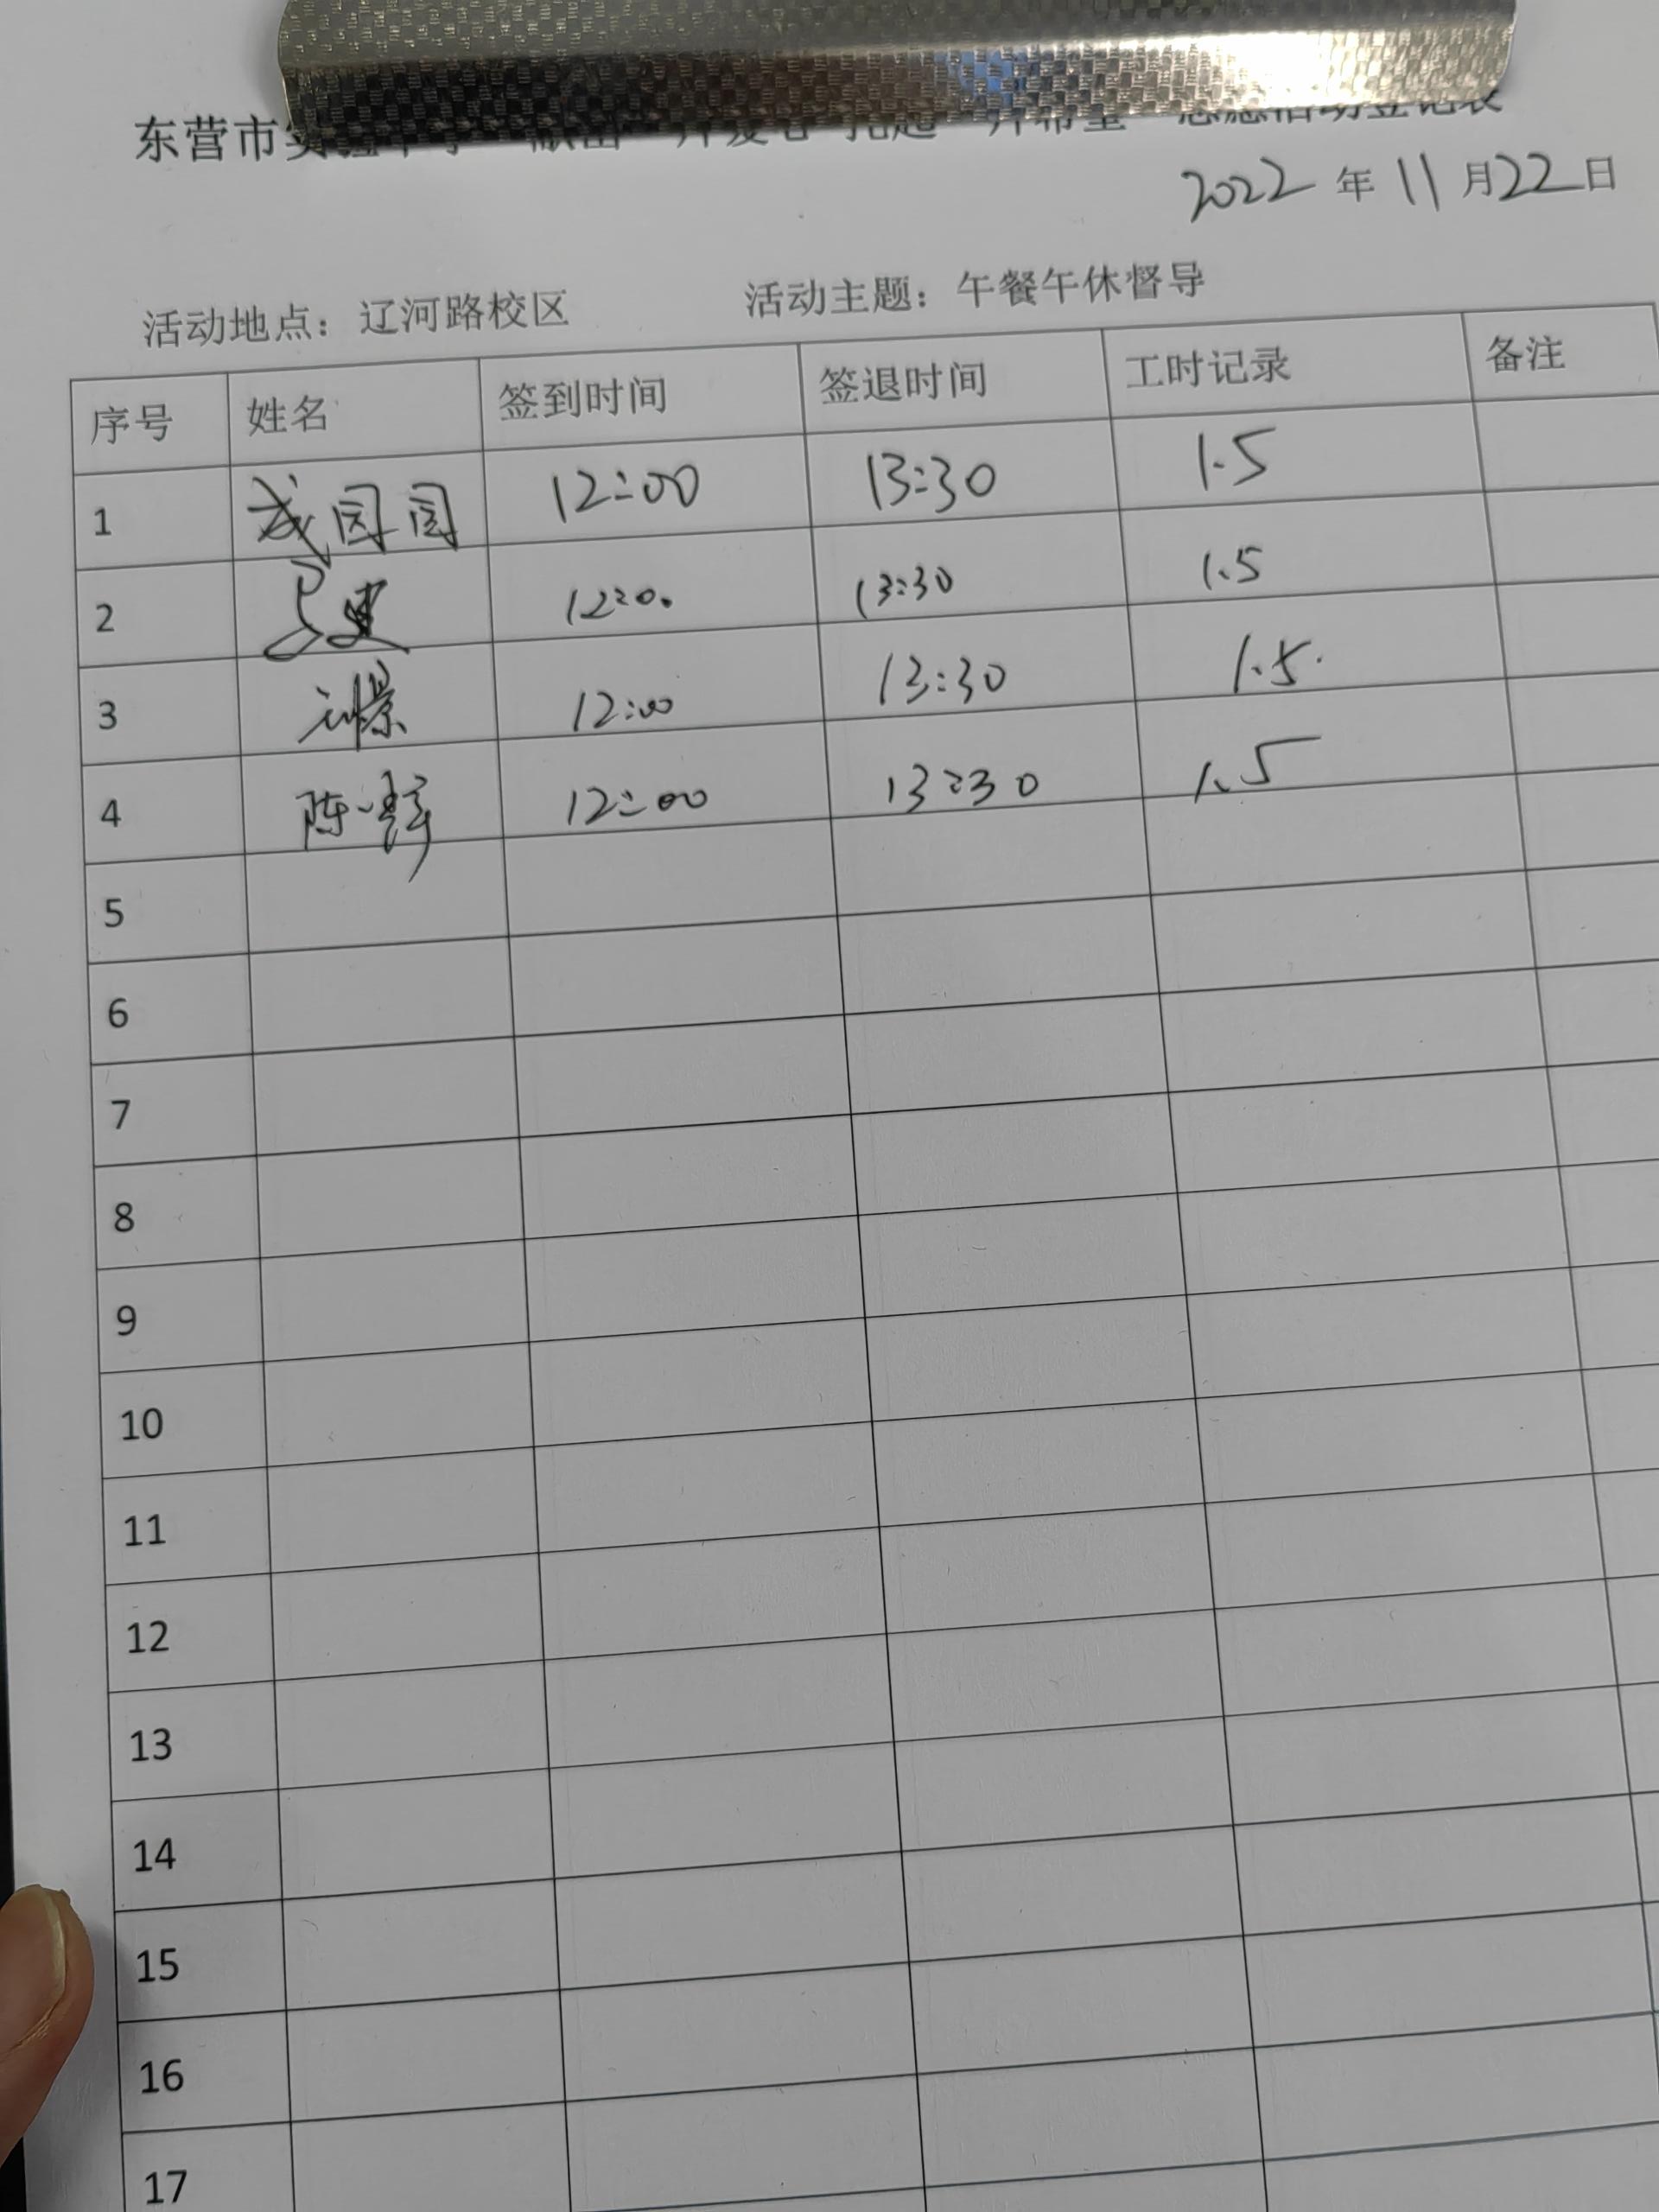 东营市实验中学 献出一片爱心 托起一片希望 志愿活动登记表
2022 年 11 月 22 日
活动地点：辽河路校区 活动主题：午餐午休督导
序号 姓名 签到时间 签退时间 工时记录 备注
1 园园 12:00 13:30 1.5
2 12:00 13:30 1.5
3 12:00 13:30 1.5.
4 陈 12:00 13:30 1.5
5
6
7
8
9
10
11
12
13
14
15
16
17